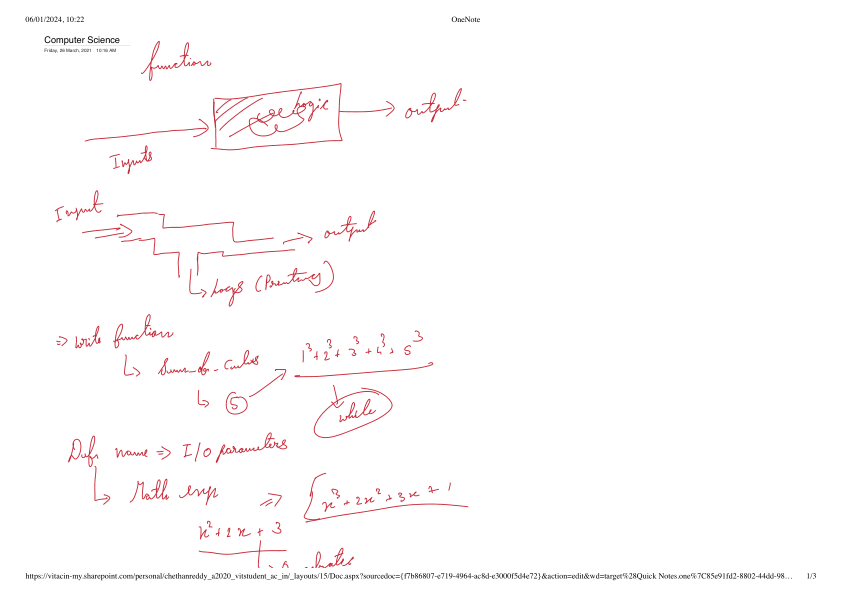 06/01/2024, 10:22 OneNote
Computer Science
Friday, 26 March, 2021 10:16 AM
function
Logic
output
Inputs
Input
output
Logs (Printing)
⇒ Write function
↳ Sum_of_cubes
1³+2³+3³+4³+5³
↳ 5
while
Defn name ⇒ I/O parameters
↳ Math exp ⇒ ∫x³+2x²+3x+1
x²+2x+3
https://vitacin-my.sharepoint.com/personal/chethanreddy_a2020_vitstudent_ac_in/_layouts/15/Doc.aspx?sourcedoc={f7b86807-e719-4964-ac8d-e3000f5d4e72}&action=edit&wd=target%28Quick Notes.one%7C85e91fd2-8802-44dd-98… 1/3